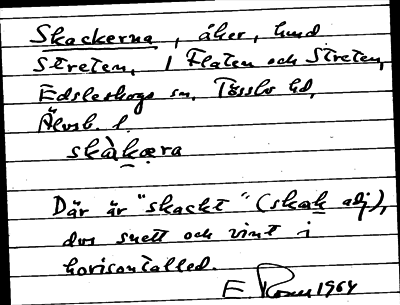 Skackerna, åker, hmd
Streten, / Flaten och Streten,
Edsleskogs sn, Tössbo hd,
Älvsb. l.
skàkæra
Där är "skackt" (skak adj),
dvs snett och vint i
horisontalled.
E. 1964